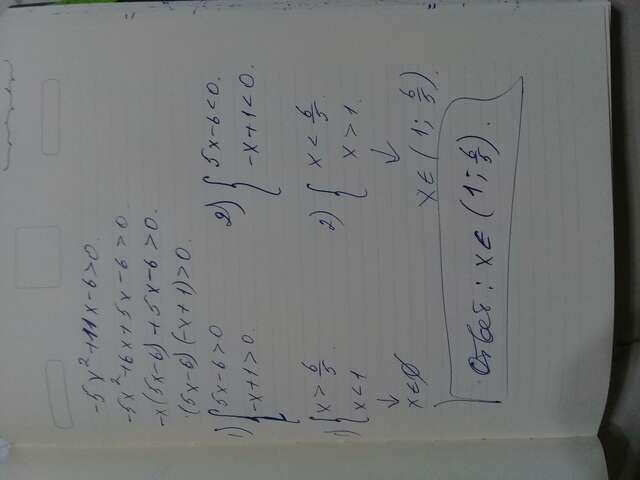 -5x²+11x-6>0.
-5x²+6x+5x-6>0
-x(5x-6)+5x-6>0.
(5x-6)(-x+1)>0.
1) { 5x-6>0
-x+1>0.
2) { 5x-6<0.
-x+1<0.
1) { x>6/5
x<1
↓
x∈∅
2) { x<6/5.
x>1.
↓
x∈(1; 6/5)
Ответ: x∈(1; 6/5).